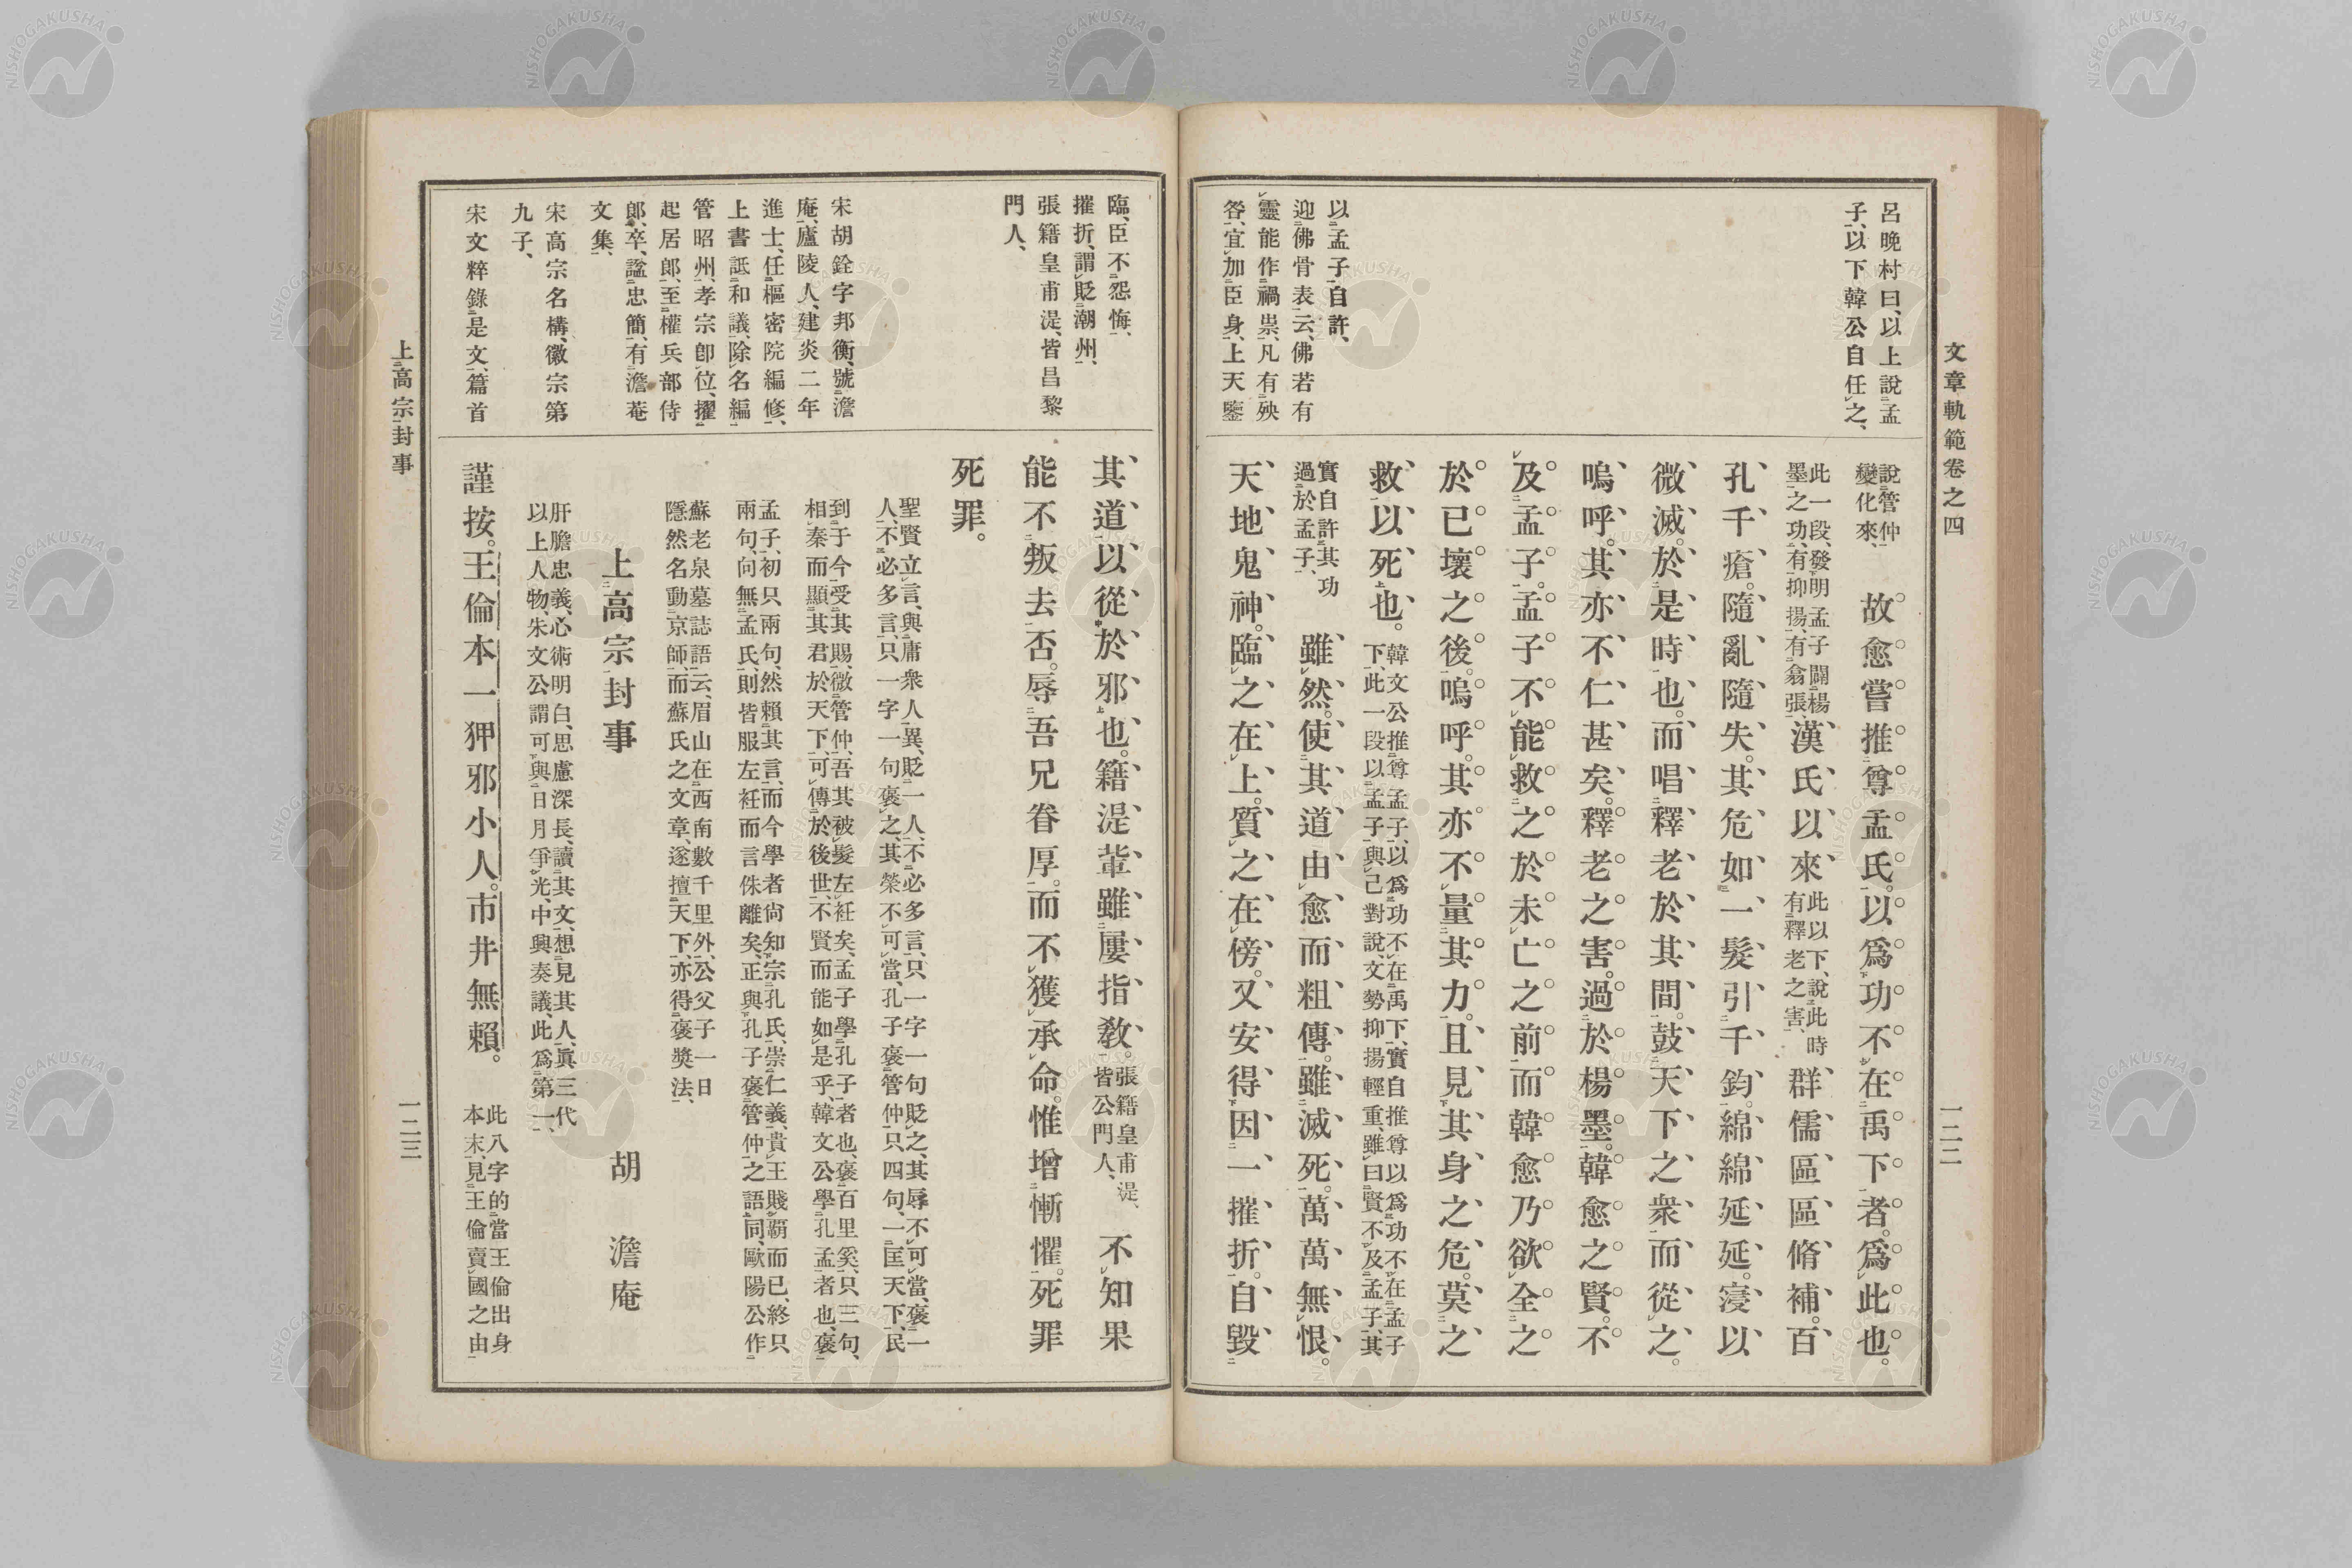 文章軌範卷之四
一二二
呂晚村曰、以上說孟
子、以下韓公自任之、
以孟子自許、
迎佛骨表云、佛若有
靈能作禍祟、凡有殃
咎、宜加臣身、上天鑒
說管仲
變化來、
故愈嘗推尊孟氏。以爲功不在禹下者。爲此也。
此一段、發明孟子闢楊
墨之功、有抑揚、有翕張、
漢氏以來
此以下、說此時
有釋老之害、
群儒區區脩補。百
孔千瘡。隨亂隨失。其危如一髮引千鈞。綿綿延延。寖以
微滅。於是時也。而唱釋老於其間。鼓天下之衆而從之。
嗚呼。其亦不仁甚矣。釋老之害。過於楊墨。韓愈之賢。不
及孟子。孟子不能救之於未亡之前。而韓愈乃欲全之
於已壞之後。嗚呼。其亦不量其力。且見其身之危。莫之
救以死也。
韓文公推尊孟子、以爲功不在禹下、實自推尊以爲功不在孟子
下、此一段以孟子與己對說、文勢抑揚輕重、雖曰賢不及孟子、其
實自許其功
過於孟子、
雖然。使其道由愈而粗傳。雖滅死。萬萬無恨。
天地鬼神。臨之在上。質之在傍。又安得因一摧折。自毀
臨、臣不怨悔、
摧折、謂貶潮州、
張籍皇甫湜、皆昌黎
門人、
宋胡銓字邦衡、號澹
庵、廬陵人、建炎二年
進士、任樞密院編修、
上書詆和議、除名編
管昭州、孝宗卽位、擢
起居郎、至權兵部侍
郎、卒、謚忠簡、有澹菴
文集、
宋高宗名構、徽宗第
九子、
宋文粹錄是文、篇首
其道以從於邪也。籍湜輩雖屢指敎。
張籍皇甫湜、
皆公門人、
不知果
能不叛去否。辱吾兄眷厚。而不獲承命。惟增慚懼。死罪
死罪。
聖賢立言、與庸衆人異、貶一人、不必多言、只一字一句貶之、其辱不可當、褒一
人、不必多言、只一字一句褒之、其榮不可當、孔子褒管仲、只四句、一匡天下、民
到于今受其賜、微管仲、吾其被髮左衽矣、孟子學孔子者也、褒百里奚、只三句、
相秦而顯其君於天下、可傳於後世、不賢而能如是乎、韓文公學孔孟者也、褒
孟子、初只兩句、然賴其言、而今學者尙知宗孔氏、崇仁義、貴王賤覇而已、終只
兩句、向無孟氏、則皆服左衽而言侏離矣、正與孔子褒管仲之語同、歐陽公作
蘇老泉墓誌語云、眉山在西南數千里外、公父子一日
隱然名動京師、而蘇氏之文章、遂擅天下、亦得褒奬法、
上高宗封事
胡　澹庵
肝膽忠義、心術明白、思慮深長、讀其文、想見其人、眞三代
以上人物、朱文公謂可與日月爭光、中興奏議、此爲第一、
謹按。王倫本一狎邪小人。市井無賴。
此八字的當王倫出身
本末、見王倫賣國之由
上高宗封事
一二三